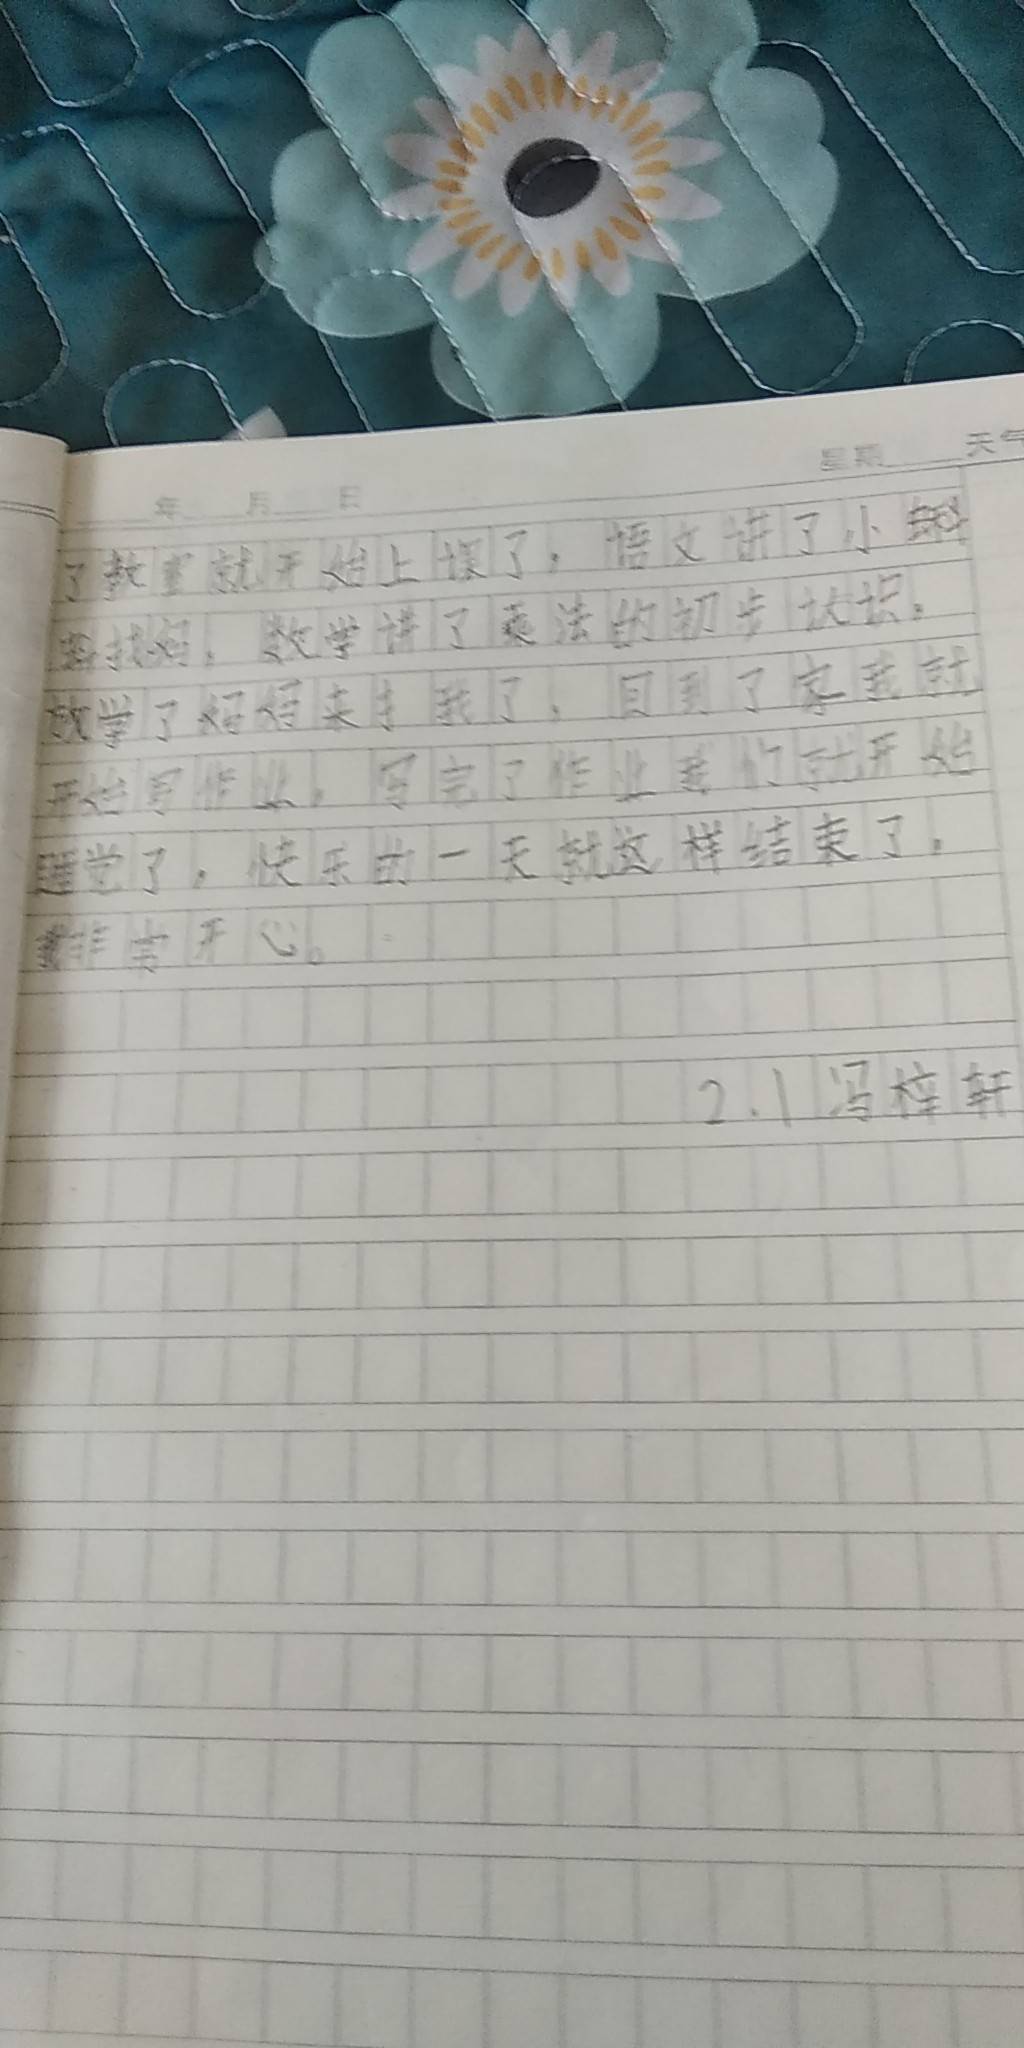 年 月 日 星期 天气
了教室就开始上课了，语文讲了小蝌
蚪找妈，数学讲了乘法的初步认识。
放学了妈妈来接我了，回到了家我就
开始写作业，写完了作业我们就开始
睡觉了，快乐的一天就这样结束了，
非常开心。
2.1冯梓轩